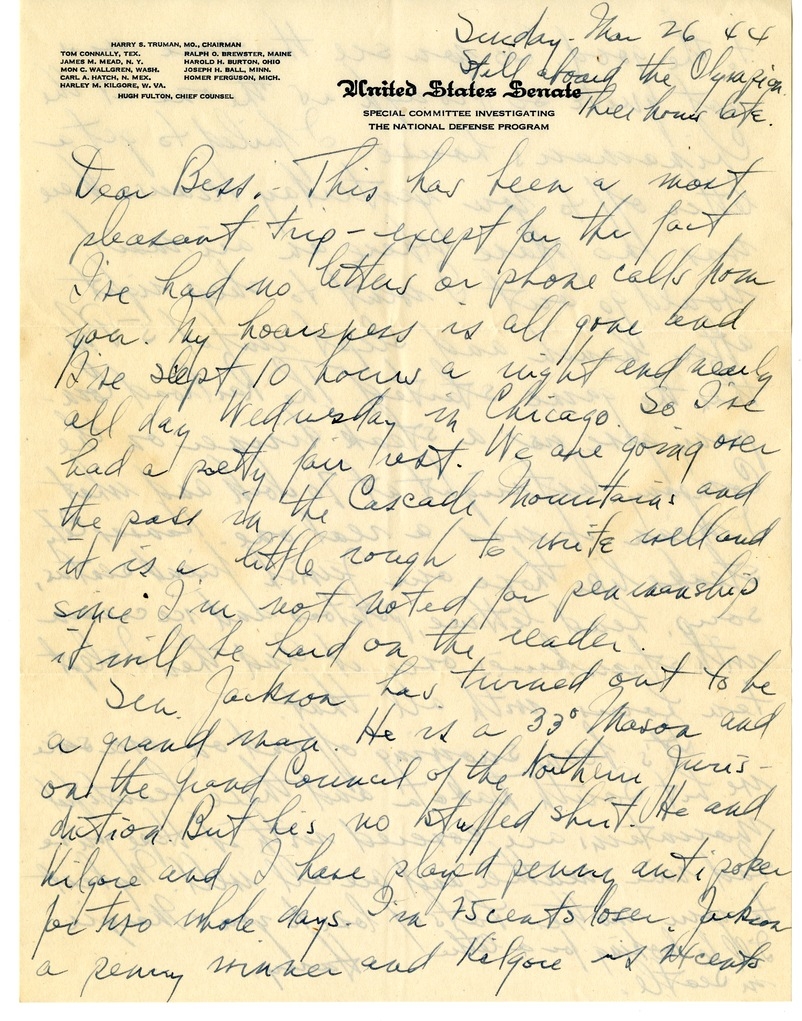 HARRY S. TRUMAN, MO., CHAIRMAN
TOM CONNALLY, TEX. RALPH O. BREWSTER, MAINE
JAMES M. MEAD, N. Y. HAROLD H. BURTON, OHIO
MON C. WALLGREN, WASH. JOSEPH H. BALL, MINN.
CARL A. HATCH, N. MEX. HOMER FERGUSON, MICH.
HARLEY M. KILGORE, W. VA.
HUGH FULTON, CHIEF COUNSEL
Sunday - Mar 26 '44
Still aboard the Olympian.
United States Senate
Three hours late.
SPECIAL COMMITTEE INVESTIGATING
THE NATIONAL DEFENSE PROGRAM
Dear Bess:- This has been a most
pleasant trip - except for the fact
I've had no letters or phone calls from
you. My hoarsness is all gone and
I've slept 10 hours a night and nearly
all day Wednesday in Chicago. So I've
had a pretty fair rest. We are going over
the pass in the Cascade Mountains and
it is a little rough to write well and
since I'm not noted for penmanship
it will be hard on the reader.
Sen. Jackson has turned out to be
a grand man. He is a 33° Mason and
on the grand Council of the Northern Juris-
diction. But he's no stuffed shirt. He and
Kilgore and I have played penny anti poker
for two whole days. I'm 25 cents loser, Jackson
a penny winner and Kilgore is 24 cents